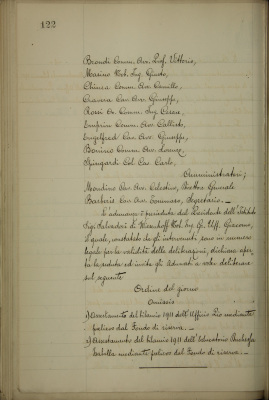 122
Brondi Comm. Avv. Prof. Vittorio,
Marino Nob. Ing. Guido,
Chiesa Comm. Avv. Camillo,
Cravera Cav. Avv. Giuseppe,
Rossi Cr. Comm. Ing. Cesare,
Comm. Avv. Callisto,
Engelfred Cav. Avv. Giuseppe,
Bonino Comm. Avv. Lorenzo,
Spingardi Col. Cav. Carlo,
Amministratori;
Mondino Cav. Avv. Celestino, Direttore Generale
Barberis Cav. Avv. Tommaso, Segretario.
L'adunanza è presieduta dal Presidente dell'
Sigr Salvadori di Wiesenhoff Nob. Ing. Gr. Uff. Giacomo,
il quale, constatato che gli intervenuti sono in numero
legale per la validità delle deliberazioni, dichiara aper-
ta la seduta ed invita gli Adunati a voler deliberare
sul seguente
Ordine del giorno
Omissis
1) Assestamento del bilancio 1911 dell'Ufficio Pio mediante
prelievo dal Fondo di riserva.
2) Assestamento del bilancio 1911 dell'Educatorio Duchessa
Isabella mediante prelievo dal Fondo di riserva.